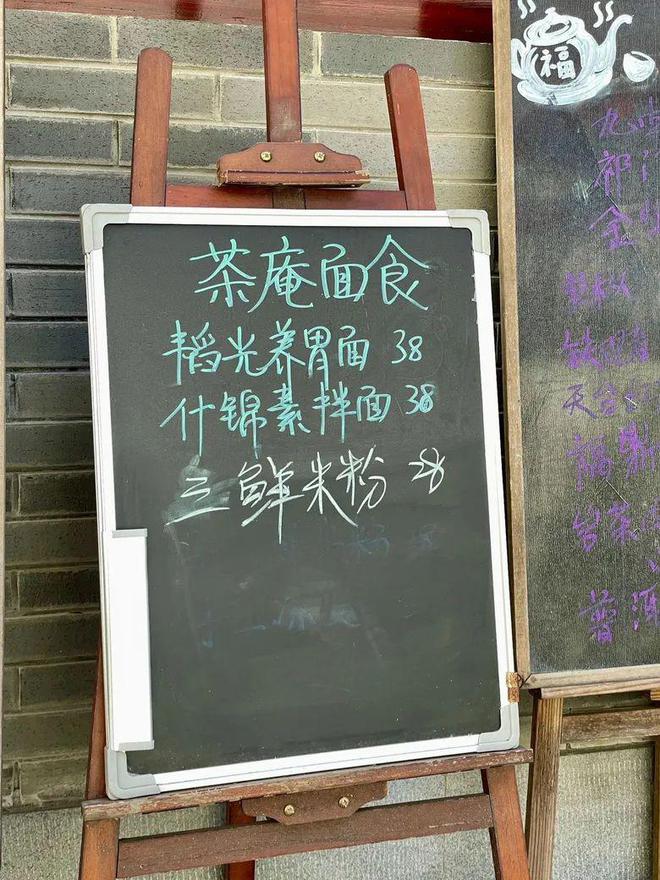 茶庵面食
韬光养胃面 38
什锦素拌面 38
三鲜米粉 28
福
九
祁
金
铁
天台
福鼎
台茶
普洱